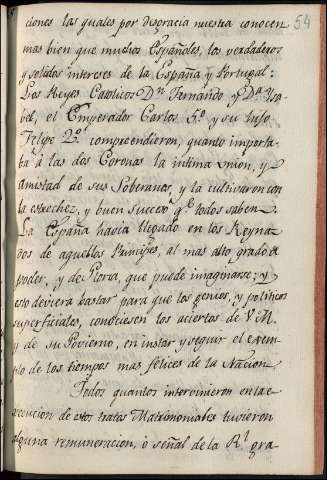 54
ciones las quales por disgracia nuestra conocen
mas bien que muchos Españoles, los verdaderos
y solidos intereses de la España y Portugal:
Los Reyes Catolicos Dn. Fernando y Da. Ysa
bel, el Emperador Carlos 5o. y su hijo
Felipe 2o. comprendieron, quanto importa-
ba á las dos Coronas la intima union, y
amistad de sus Soberanos, y la cultivaron con
la estrechez, y buen suceso qe. todos saben.
La España havia llegado en los Reyna
dos de aquellos Principes, al mas alto grado de
poder, y de gloria, que puede imaginarse; y
esto deviera bastar para que los genios, y politicos
superficiales, conociesen los aciertos de V. M.
y de su Govierno, en instar y seguir el exem-
plo de los tiempos mas felices de la Nacion.
Todos quantos intervinieron en la e
xecucion de estos tratos Matrimoniales tuvieron
alguna remuneracion, ó señal de la Rl. gra